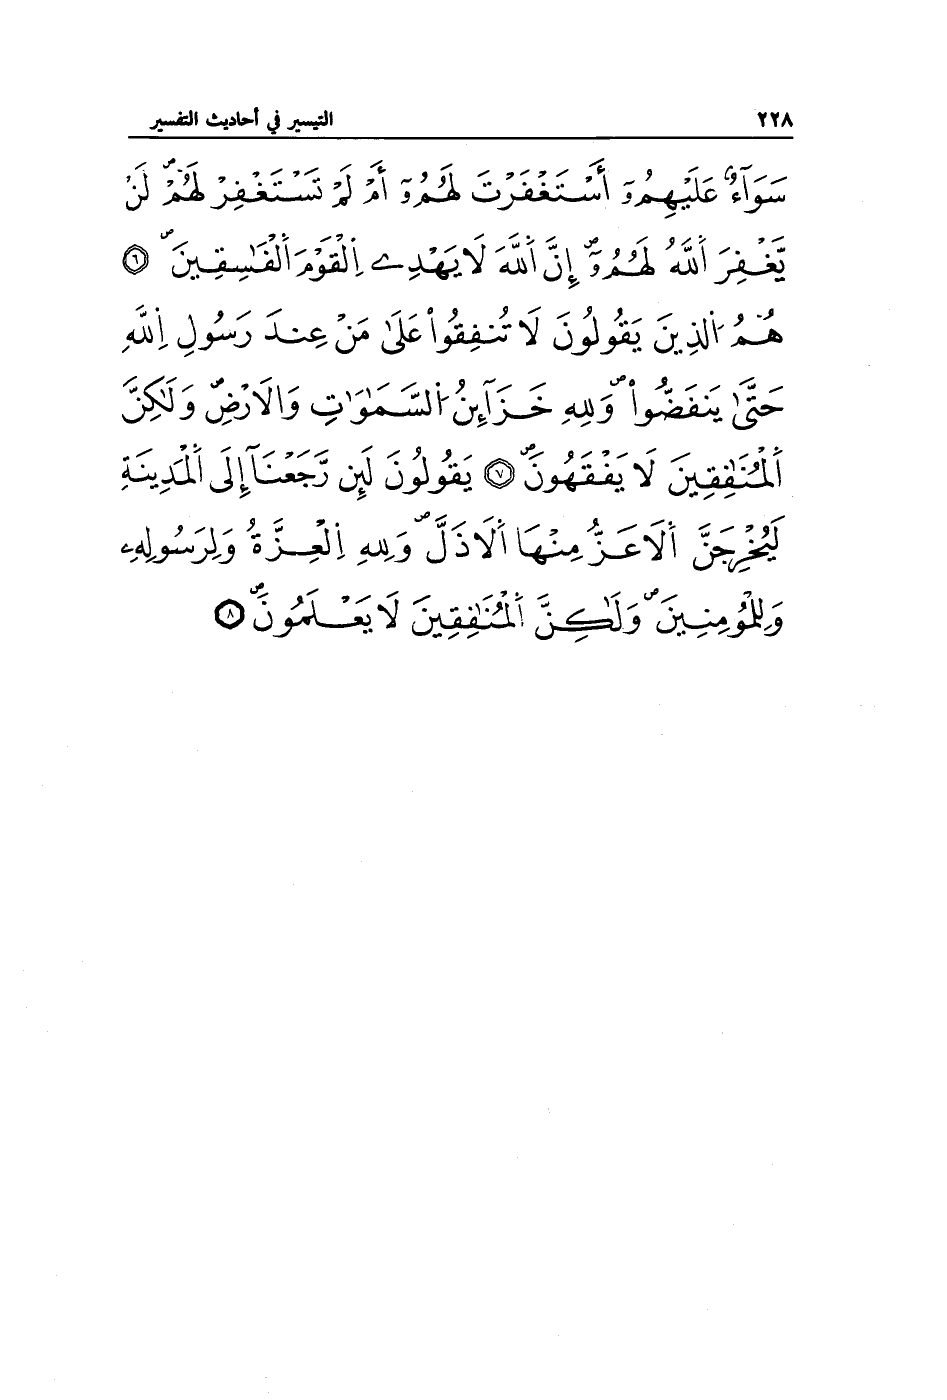 ٢٢٨ التيسير في أحاديث التفسير
سَوَآءٌ عَلَيْهِمُۥٓ أَسْتَغْفَرْتَ لَهُمُۥٓ أَمْ لَمْ تَسْتَغْفِرْ لَهُمْۖ لَنْ
يَّغْفِرَ اَ۬للَّهُ لَهُمُۥٓۖ إِنَّ اَ۬للَّهَ لَا يَهْدِے اِ۬لْقَوْمَ اَ۬لْفَٰسِقِينَۖ ٦
هُمُ اُ۬لذِينَ يَقُولُونَ لَا تُنفِقُواْ عَلَىٰ مَنْ عِندَ رَسُولِ اِ۬للَّهِ
حَتَّىٰ يَنفَضُّواْۖ وَلِلهِ خَزَآئِنُ اُ۬لسَّمَٰوَٰتِ وَالَارْضِۖ وَلَٰكِنَّ
اَ۬لْمُنَٰفِقِينَ لَا يَفْقَهُونَۖ ٧ يَقُولُونَ لَئِن رَّجَعْنَآ إِلَى اَ۬لْمَدِينَةِ
لَيُخْرِجَنَّ اَ۬لَاعَزُّ مِنْهَا اَ۬لَاذَلَّۖ وَلِلهِ اِ۬لْعِزَّةُ وَلِرَسُولِهِۦ
وَلِلْمُومِنِينَۖ وَلَٰكِنَّ اَ۬لْمُنَٰفِقِينَ لَا يَعْلَمُونَۖ ٨